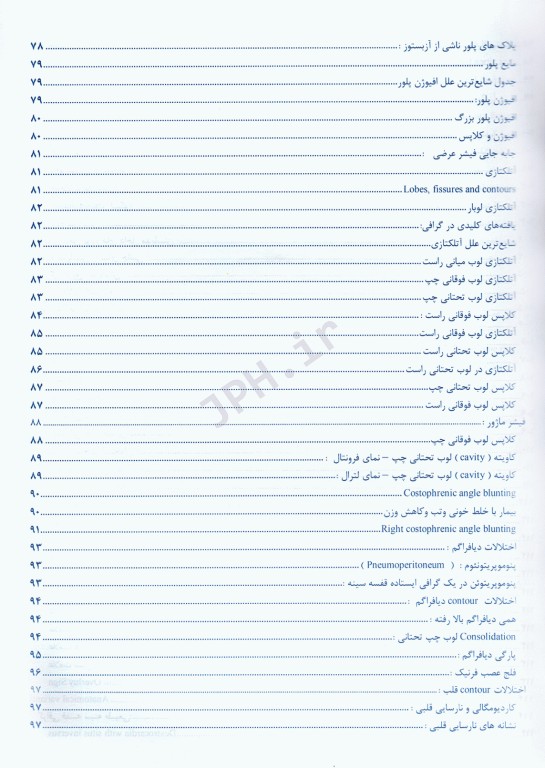 پلاک های پلور ناشی از آزبستوز : ۷۸
مایع پلور ۷۹
جدول شایع‌ترین علل افیوژن پلور ۷۹
افیوژن پلور: ۷۹
افیوژن پلور بزرگ ۸۰
افیوژن و کلاپس ۸۰
جابه جایی فیشر عرضی : ۸۱
آتلکتازی ۸۱
Lobes, fissures and contours ۸۱
آتلکتازی لوبار ۸۲
یافته‌های کلیدی در گرافی: ۸۲
شایع‌ترین علل آتلکتازی ۸۲
آتلکتازی لوب میانی راست ۸۲
آتلکتازی لوب فوقانی چپ ۸۳
آتلکتازی لوب تحتانی چپ ۸۳
کلاپس لوب فوقانی راست : ۸۴
آتلکتازی لوب فوقانی راست ۸۵
کلاپس لوب تحتانی راست ۸۵
آتلکتازی در لوب تحتانی راست ۸۶
کلاپس لوب تحتانی چپ ۸۷
کلاپس لوب فوقانی راست ۸۷
فیشر ماژور : ۸۸
کلاپس لوب فوقانی چپ ۸۸
کاویته ( cavity ) لوب تحتانی چپ – نمای فرونتال : ۸۹
کاویته ( cavity ) لوب تحتانی چپ – نمای لترال : ۸۹
Costophrenic angle blunting ۹۰
بیمار با خلط خونی وتب وکاهش وزن ۹۰
Right costophrenic angle blunting ۹۱
اختلالات دیافراگم : ۹۳
پنوموپریتونئوم : ( Pneumoperitoneum ) ۹۳
پنوموپریتوئن در یک گرافی ایستاده قفسه سینه : ۹۳
اختلالات contour دیافراگم : ۹۴
همی دیافراگم بالا رفته : ۹۴
Consolidation لوب چپ تحتانی : ۹۴
پارگی دیافراگم : ۹۵
فلج عصب فرنیک : ۹۶
اختلالات contour قلب : ۹۷
کاردیومگالی و نارسایی قلبی : ۹۷
نشانه های نارسایی قلبی : ۹۷
JPH.ir